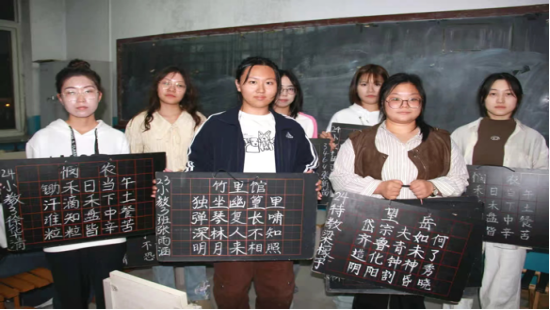 悯农
锄禾日当午
汗滴禾下土
谁知盘中餐
粒粒皆辛苦
24小教3
竹里馆
独坐幽篁里
弹琴复长啸
深林人不知
明月来相照
23小教3张雨涵
望岳
岱宗夫如何
齐鲁青未了
造化钟神秀
阴阳割昏晓
24特教
悯农
禾日当午
禾下土
盘中餐
皆辛苦
不惑
24